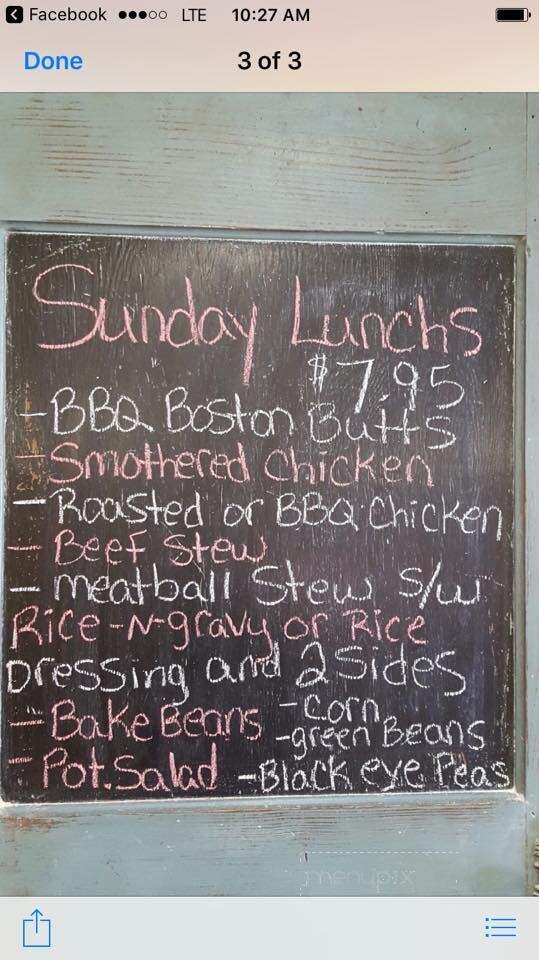 Facebook LTE 10:27 AM
Done 3 of 3
Sunday Lunchs
$7.95
-BBQ Boston Butts
-Smothered Chicken
-Roasted or BBQ Chicken
-Beef Stew
-meatball Stew s/w
Rice-N-gravy or Rice
Dressing and 2 Sides
-Bake Beans -corn
-green Beans
-Pot.Salad -Black eye Peas
menupix